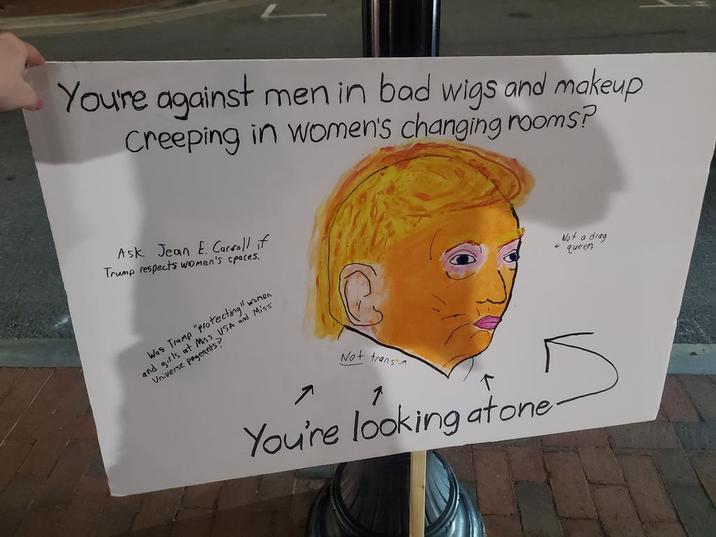 You're against men in bad wigs and makeup
creeping in women's changing rooms?
Ask Jean E. Carroll if
Trump respects women's spaces.
Not a drag
← queen
Was Trump "protecting" women
and girls at Miss USA and Miss
Universe pageants?
Not trans
You're looking at one